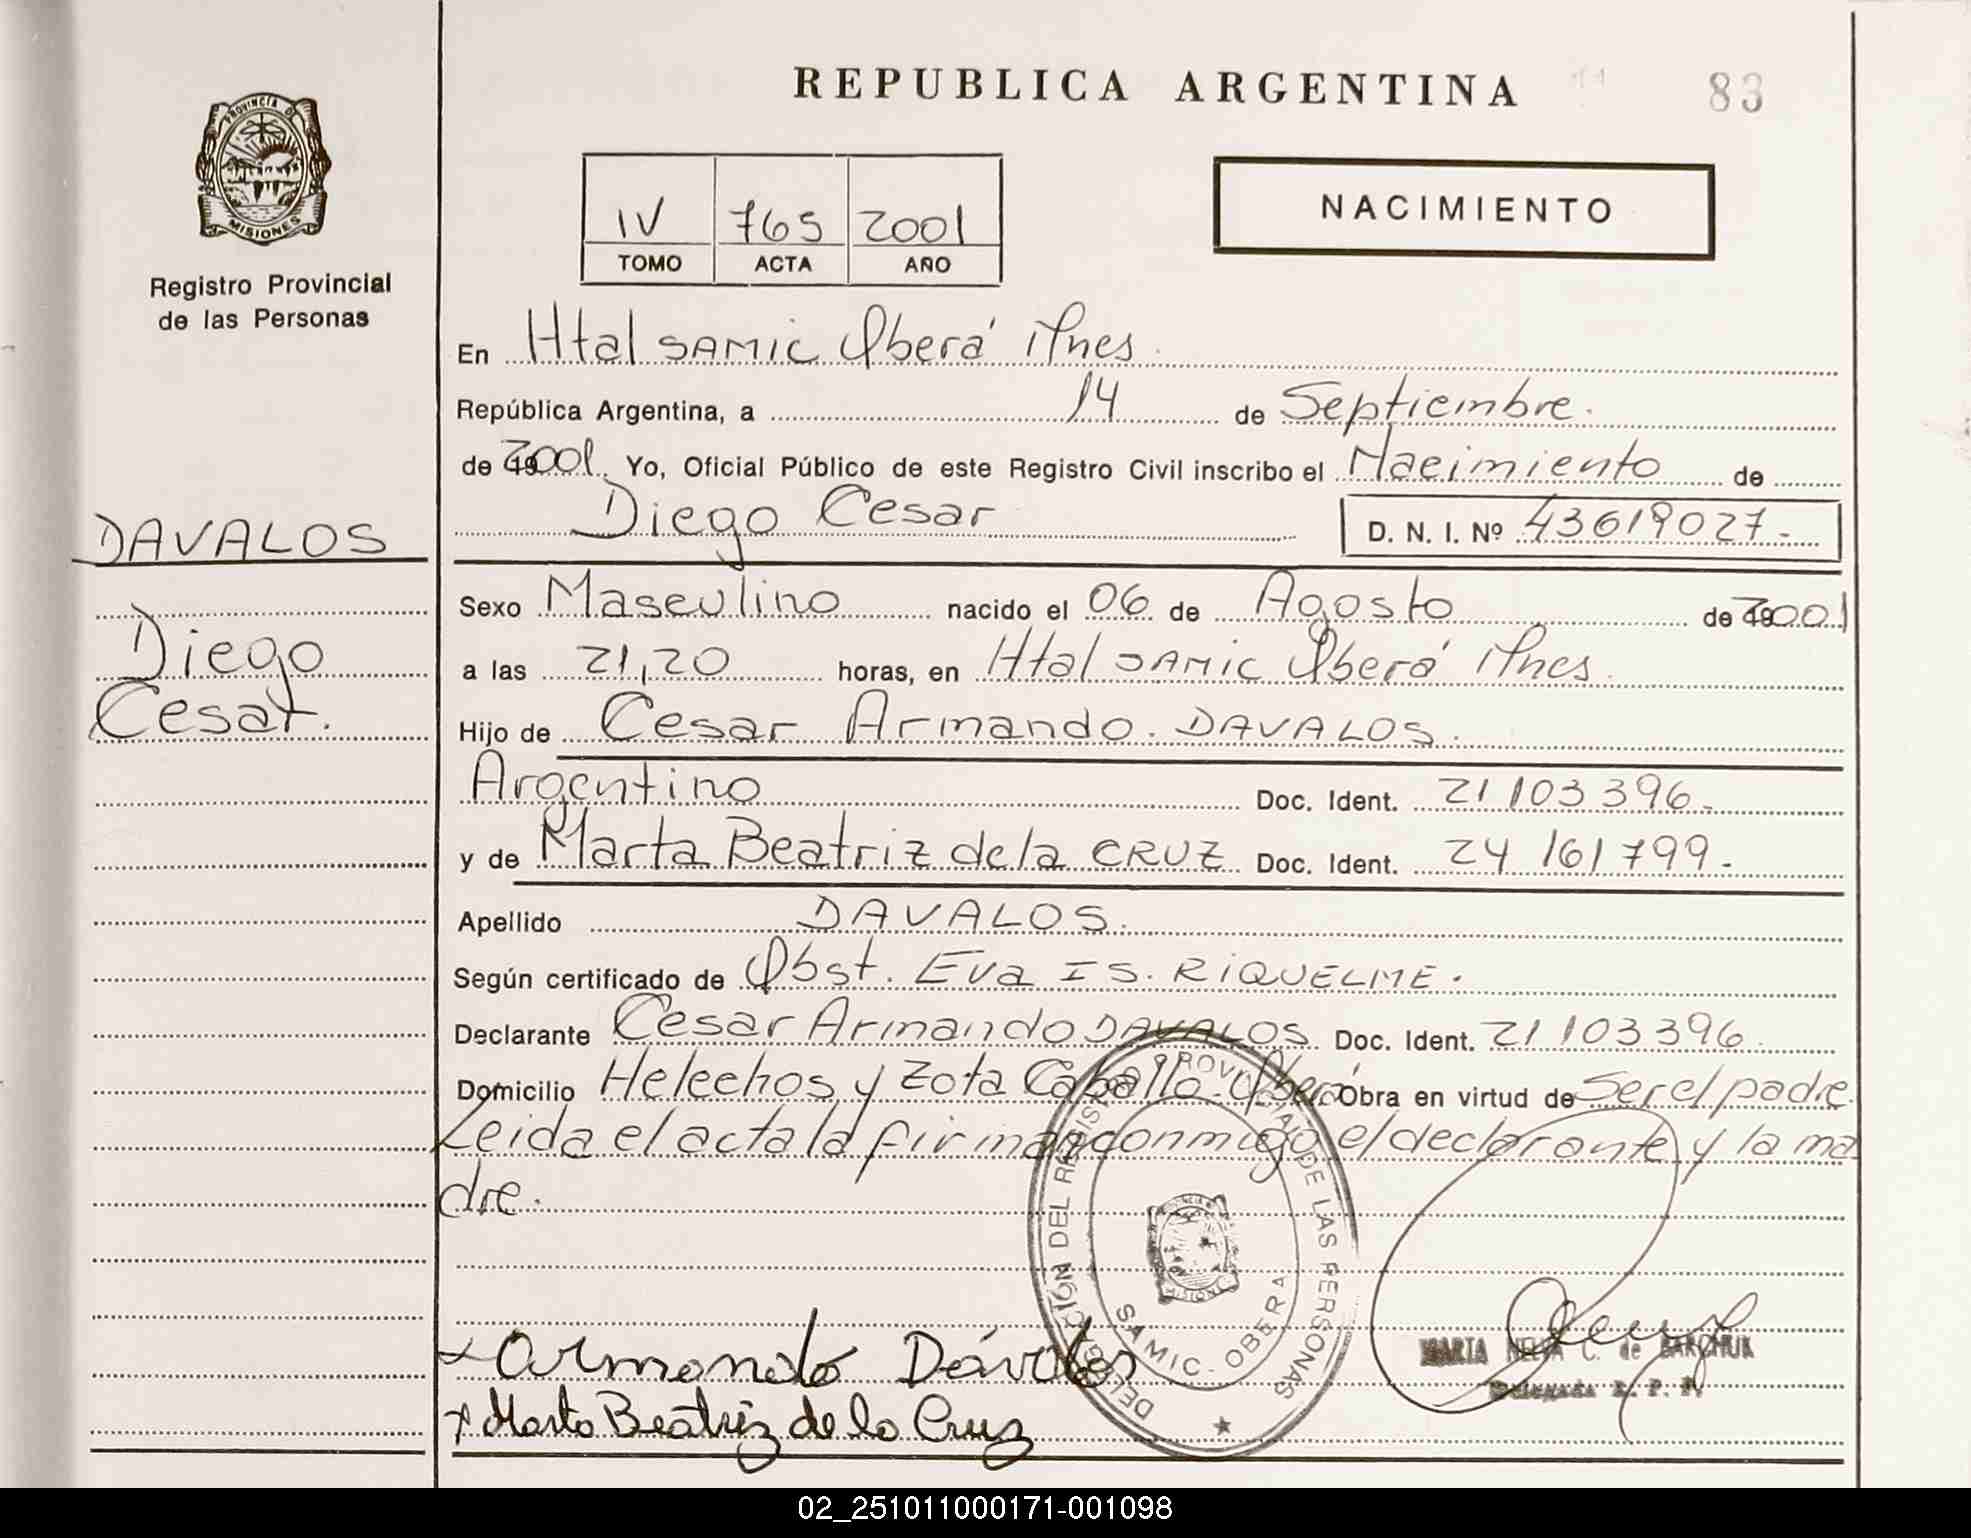 REPUBLICA ARGENTINA
83
PROVINCIA D
MISIONES
Registro Provincial
de las Personas
IV 765 2001
TOMO ACTA AÑO
NACIMIENTO
En Htal SAMIC Oberá Mnes.
República Argentina, a 14 de Septiembre.
de 2001. Yo, Oficial Público de este Registro Civil inscribo el Nacimiento de
Diego Cesar D. N. I. Nº 43619027.-
DAVALOS
Diego
Cesar.
Sexo Masculino nacido el 06 de Agosto de 2001
a las 21,20 horas, en Htal SAMIC Oberá Mnes.
Hijo de Cesar Armando. DAVALOS.
Argentino Doc. Ident. 21 103 396.-
y de Marta Beatriz de la CRUZ Doc. Ident. 24 161 799.-
Apellido DAVALOS.
Según certificado de Obst. Eva IS. RIQUELME.
Declarante Cesar Armando DAVALOS Doc. Ident. 21 103 396
Domicilio Helechos y Zota Caballo-Oberá Obra en virtud de Ser el padre.
Leida el acta la firman conmigo el declarante y la ma
dre.
DELEGACIÓN DEL REGISTRO PROVINCIAL DE LAS PERSONAS
SAMIC - OBERA
Armando Dávalos
Marta Beatriz de la Cruz
MARTA NELIDA C. de BARCHUK
Delegada R. P. P.
02_251011000171-001098